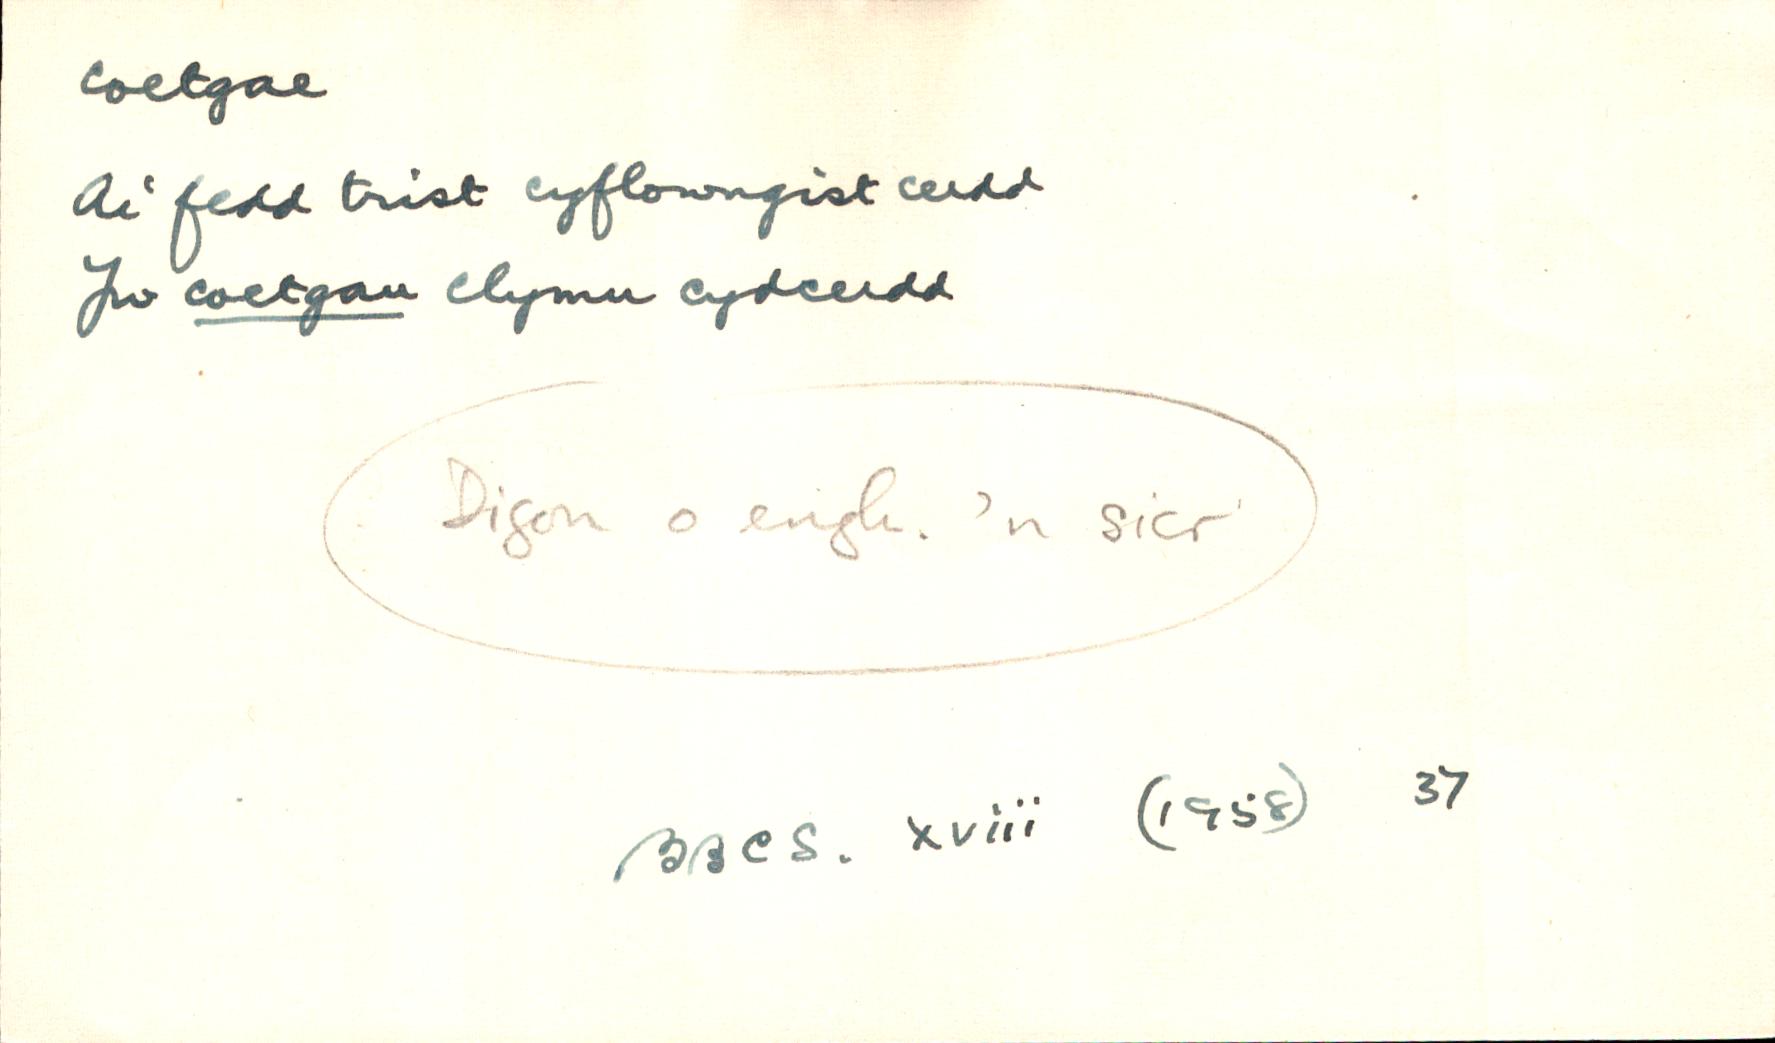 coetgae
Ai fedd trist cyflowngist cerdd
Yw coetgau clymu cydcerdd
Digon o engh. 'n sicr
BBCS. xviii (1958) 37